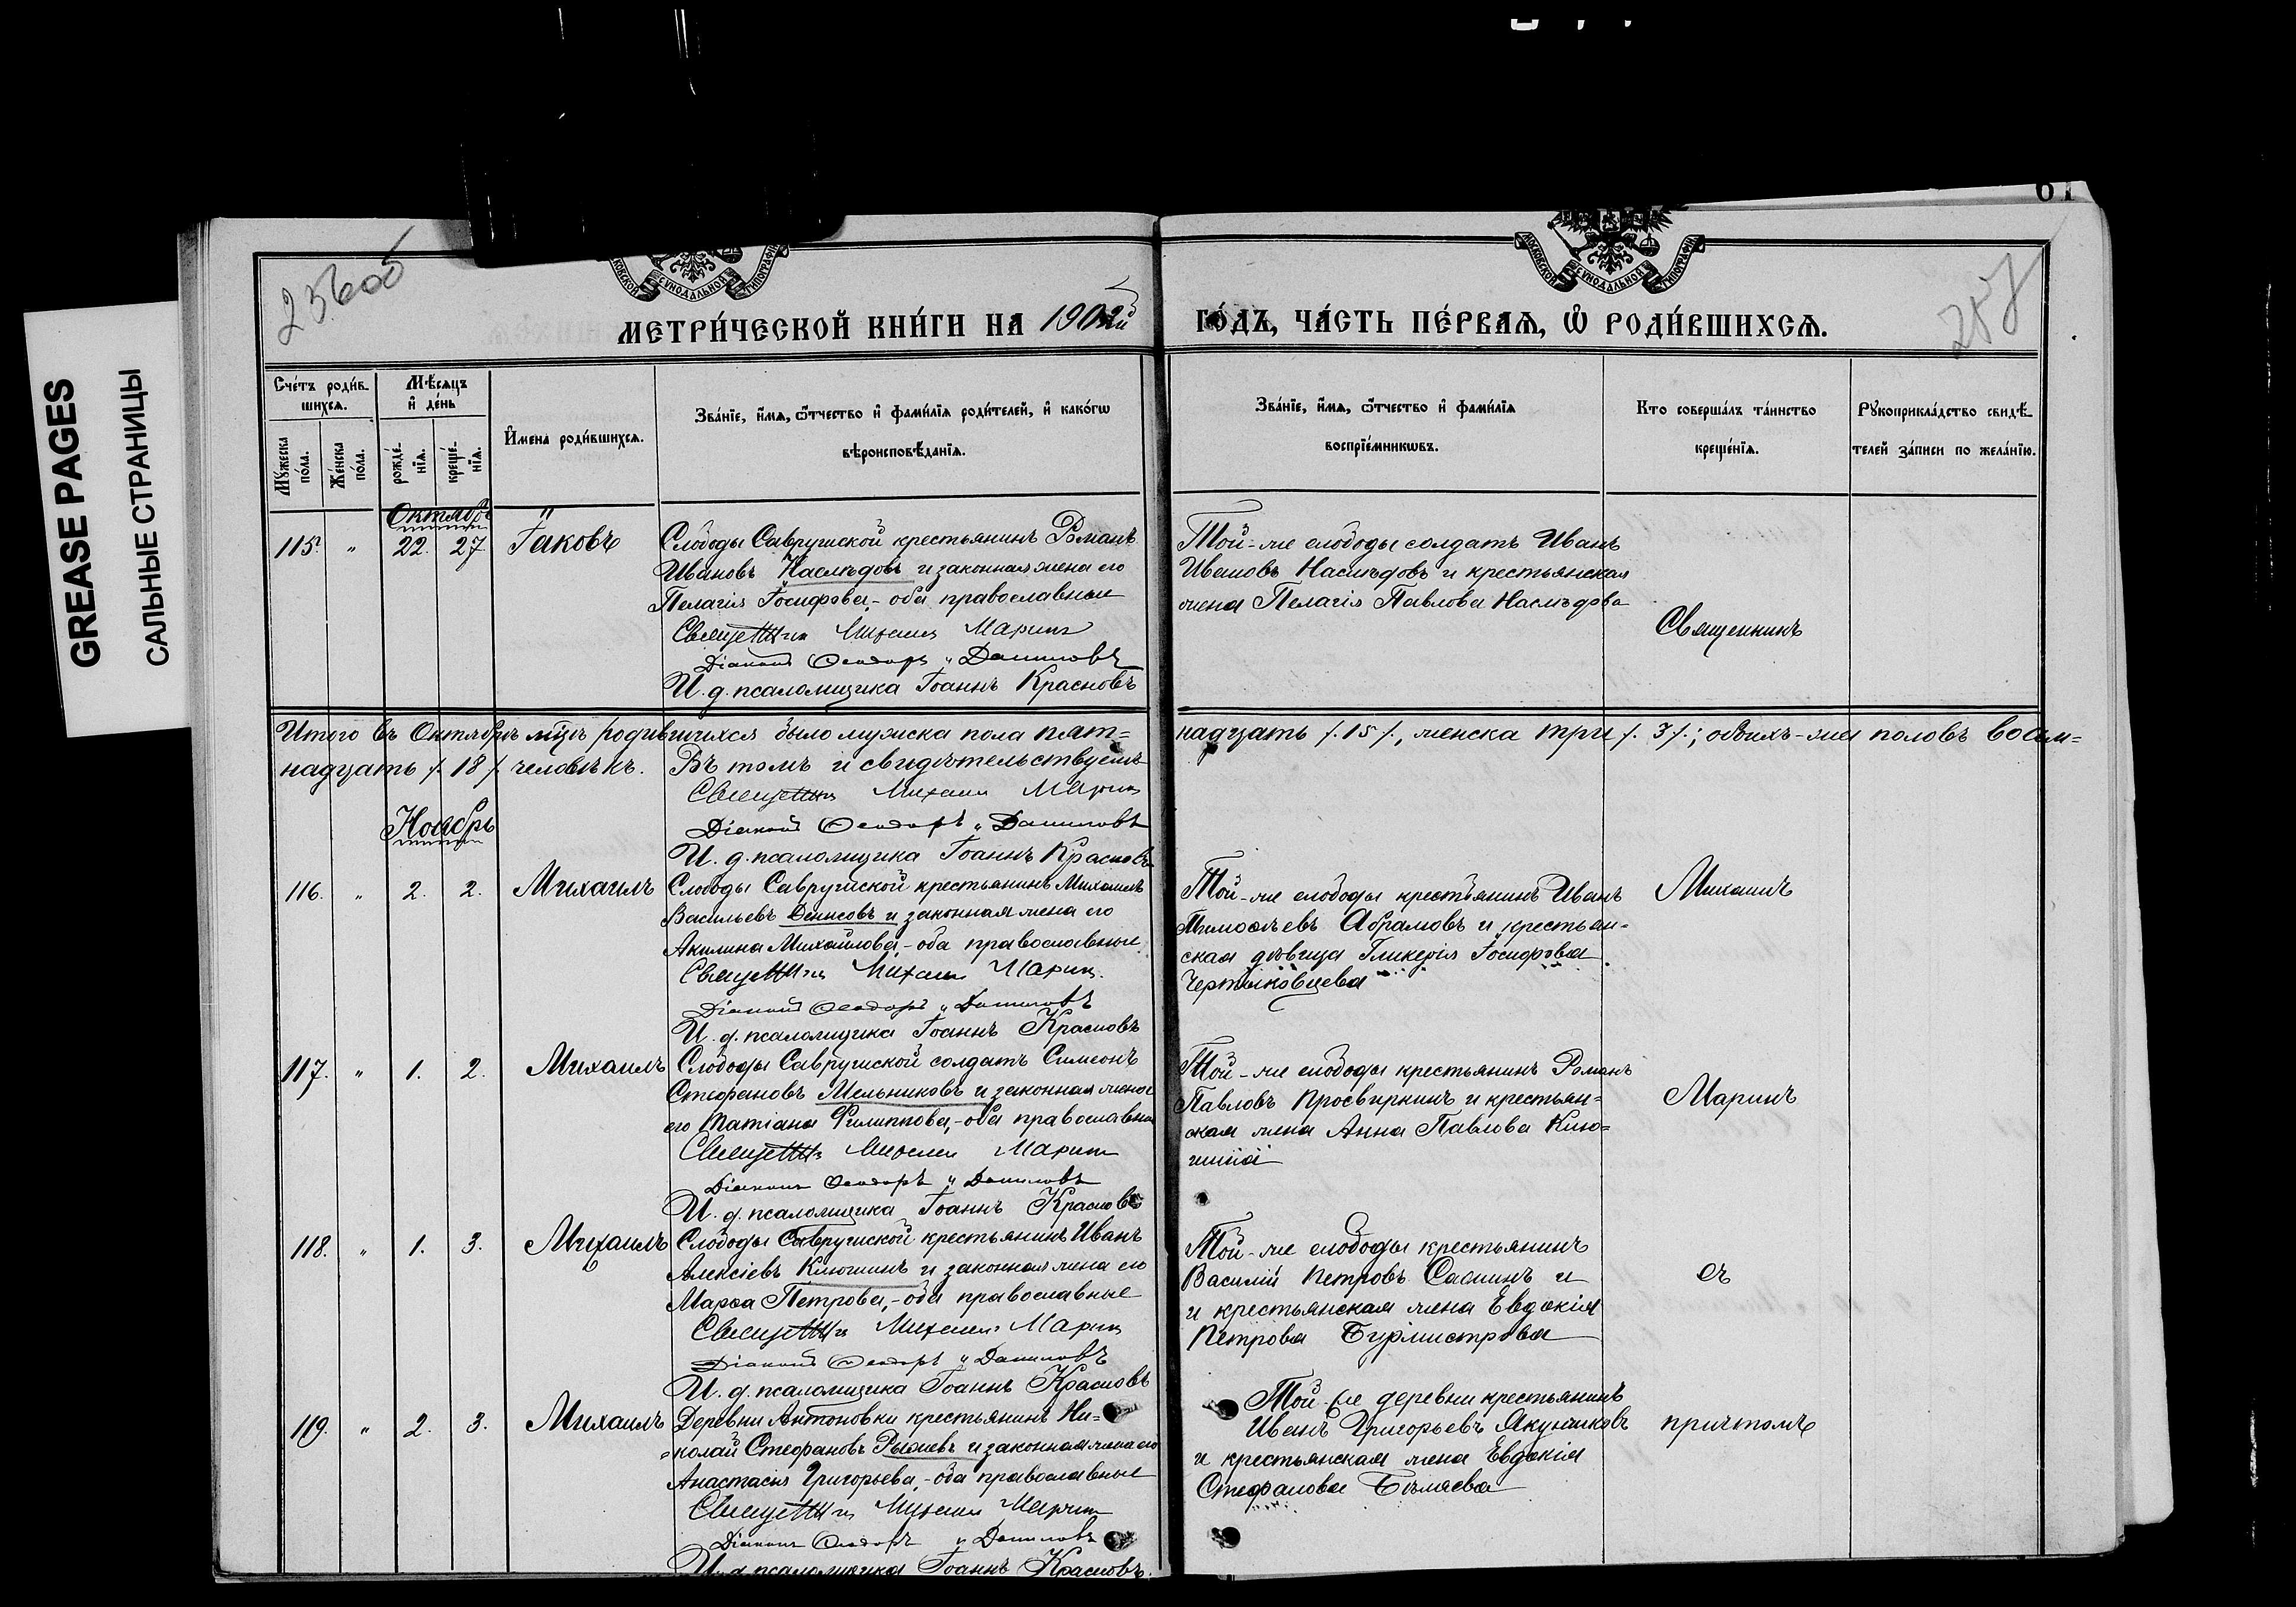 GREASE PAGES
САЛЬНЫЕ СТРАНИЦЫ
61
257
МОСКОВСКОЙ СѴНОДАЛЬНОЙ ТИПОГРАФІИ
МЕТРИ́ЧЕСКОЙ КНИ́ГИ НА 1902й ГО́ДЪ, ЧА́СТЬ ПЕ́РВАѦ, Ѡ РОДИ́ВШИХСѦ.
Сче́тъ роди́в-
шихсѧ.
Мѣ́сѧцъ
и де́нь
Мꙋ́жеска
по́ла.
Же́нска
по́ла.
рожде́-
нїѧ.
креще́-
нїѧ.
Имена роди́вшихсѧ.
Зва́нїе, и́мѧ, ѻ҆́тчество и фами́лїѧ роди́телей, и како́гѡ
вѣроисповѣ́данїѧ.
Зва́нїе, и́мѧ, ѻ҆́тчество и фами́лїѧ
воспрїе́мникѡвъ.
Кто соверша́лъ та́инство
креще́нїѧ.
Рꙋкоприкла́дство свидѣ́-
телей за́писи по жела́нїю.
Октябрь
115. " 22. 27. Іаковъ
Слободы Савружской крестьянинъ Романъ
Ивановъ Наслѣдовъ и законная жена его
Пелагія Іосифова,- оба православные
Священникъ Михаилъ Маринъ
Діаконъ Ѳеодоръ Даниловъ
И. д. псаломщика Іоаннъ Красновъ
Той-же слободы солдатъ Иванъ
Ивановъ Наслѣдовъ и крестьянская
жена Пелагія Павлова Наслѣдова
Священникъ
Итого въ Октябрѣ мѣцѣ родившихся было мужска пола пят=
надцать /. 15 /., женска три /. 3 /.; обоихъ-же половъ восем=
надцать /. 18 /. человѣкъ. Въ томъ и свидѣтельствуемъ
Священникъ Михаилъ Маринъ
Діаконъ Ѳеодоръ Даниловъ
И. д. псаломщика Іоаннъ Красновъ
Ноябрь
116. " 2. 2. Михаилъ
Слободы Савружской крестьянинъ Михаилъ
Васильевъ Денисовъ и законная жена его
Акилина Михайлова,- оба православные
Священникъ Михаилъ Маринъ
Діаконъ Ѳеодоръ Даниловъ
И. д. псаломщика Іоаннъ Красновъ
Той-же слободы крестьянинъ Иванъ
Тимоѳеевъ Абрамовъ и крестьян=
ская дѣвица Гликерія Іосифова
Чертыковцева
Михаилъ
117. " 1. 2. Михаилъ
Слободы Савружской солдатъ Симеонъ
Стефановъ Мельниковъ и законная жена
его Татіана Филиппова,- оба православные
Священникъ Михаилъ Маринъ
Діаконъ Ѳеодоръ Даниловъ
И. д. псаломщика Іоаннъ Красновъ
Той-же слободы крестьянинъ Романъ
Павловъ Просвиркинъ и крестьян=
ская жена Анна Павлова Клю=
шина
Маринъ
118. " 1. 3. Михаилъ
Слободы Савружской крестьянинъ Иванъ
Алексіевъ Клюшинъ и законная жена его
Марѳа Петрова,- оба православные
Священникъ Михаилъ Маринъ
Діаконъ Ѳеодоръ Даниловъ
И. д. псаломщика Іоаннъ Красновъ
Той-же слободы крестьянинъ
Василій Петровъ и
и крестьянская жена Евдокія
Петрова Бурмистрова
съ
119. " 2. 3. Михаилъ
Деревни Антоновки крестьянинъ Ни=
=колай Стефановъ Рыжевъ и законная жена его
Анастасія Григорьева,- оба православные
Священникъ Михаилъ Маринъ
Діаконъ Ѳеодоръ Даниловъ
И. д. псаломщика Іоаннъ Красновъ.
Той-же деревни крестьянинъ
Иванъ Григорьевъ Якунчиковъ
и крестьянская жена Евдокія
Стефанова Бѣляева
причтомъ